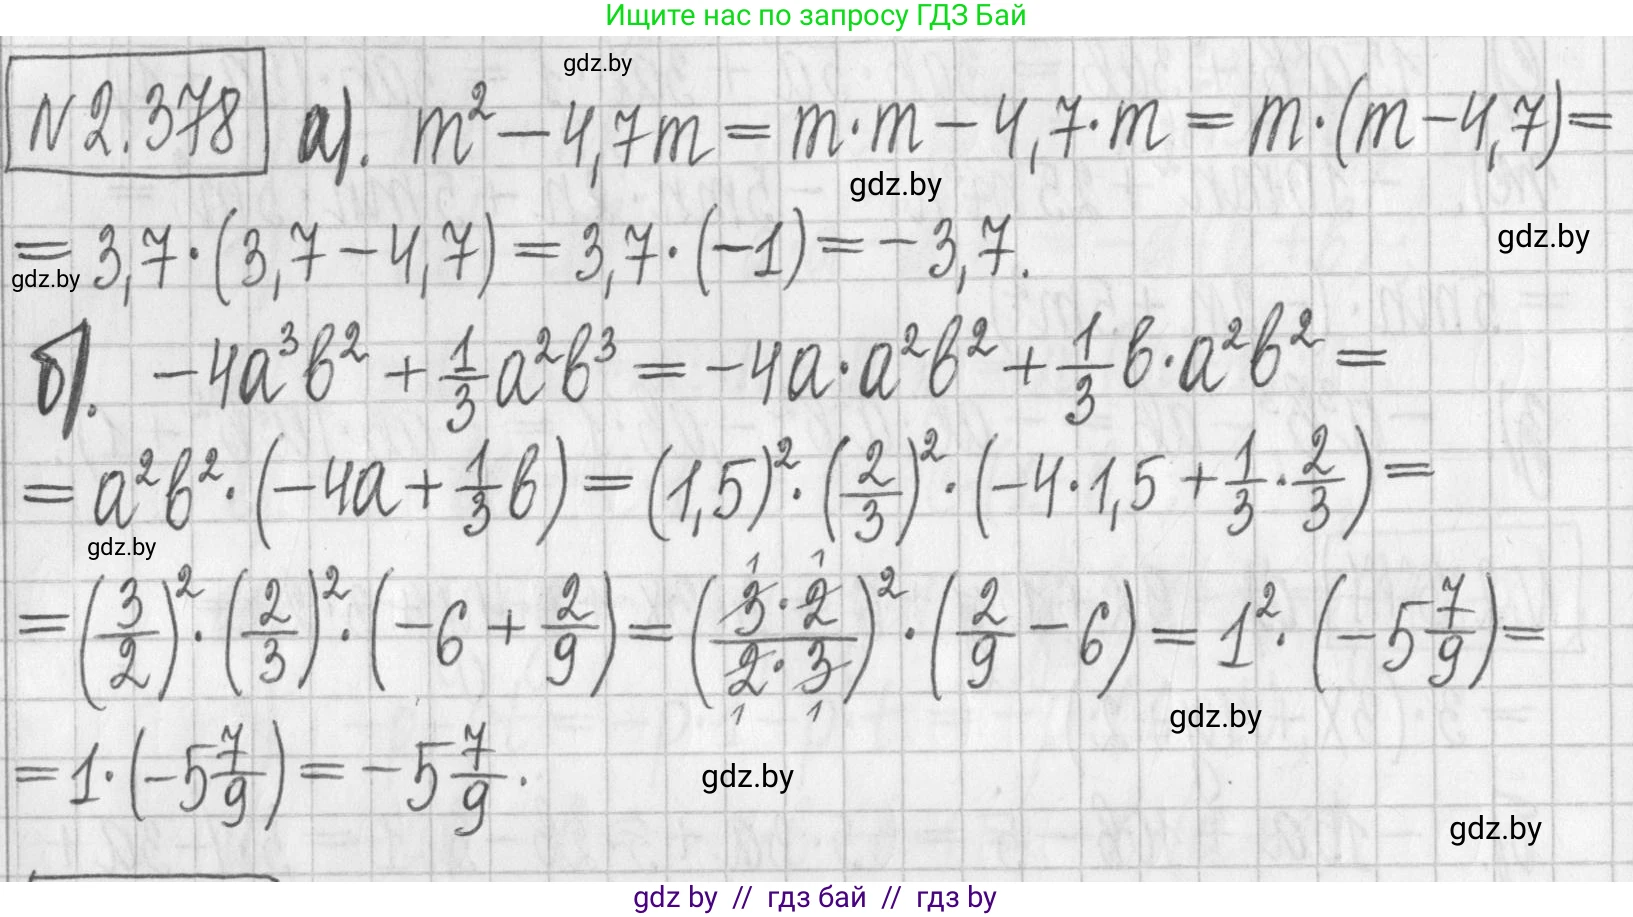 Ищите нас по запросу ГДЗ Бай
gdz.by
№2.378 а). m² − 4,7m = m·m − 4,7·m = m·(m − 4,7) =
gdz.by
= 3,7·(3,7 − 4,7) = 3,7·(−1) = −3,7.
gdz.by
gdz.by
б). −4a³b² + 1/3 a²b³ = −4a·a²b² + 1/3 b·a²b² =
= a²b²·(−4a + 1/3 b) = (1,5)²·(2/3)²·(−4·1,5 + 1/3·2/3) =
gdz.by
= (3/2)²·(2/3)²·(−6 + 2/9) = (3·2/2·3)²·(2/9 − 6) = 1²·(−5 7/9) =
gdz.by
= 1·(−5 7/9) = −5 7/9.
gdz.by
gdz.by
gdz by // гдз бай // гдз by